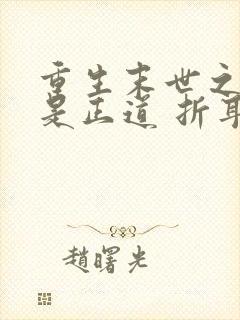 重生末世之
是正道 折耳
趙曙光